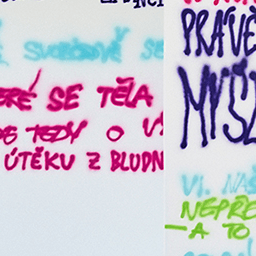 SVOBODNĚ SE
ERÉ SE TĚLA
DE TEDY O
ÚTĚKU Z BLUDN
PRÁVĚ
MYŠL
VI. NAŠ
NEPŘE
—A TO